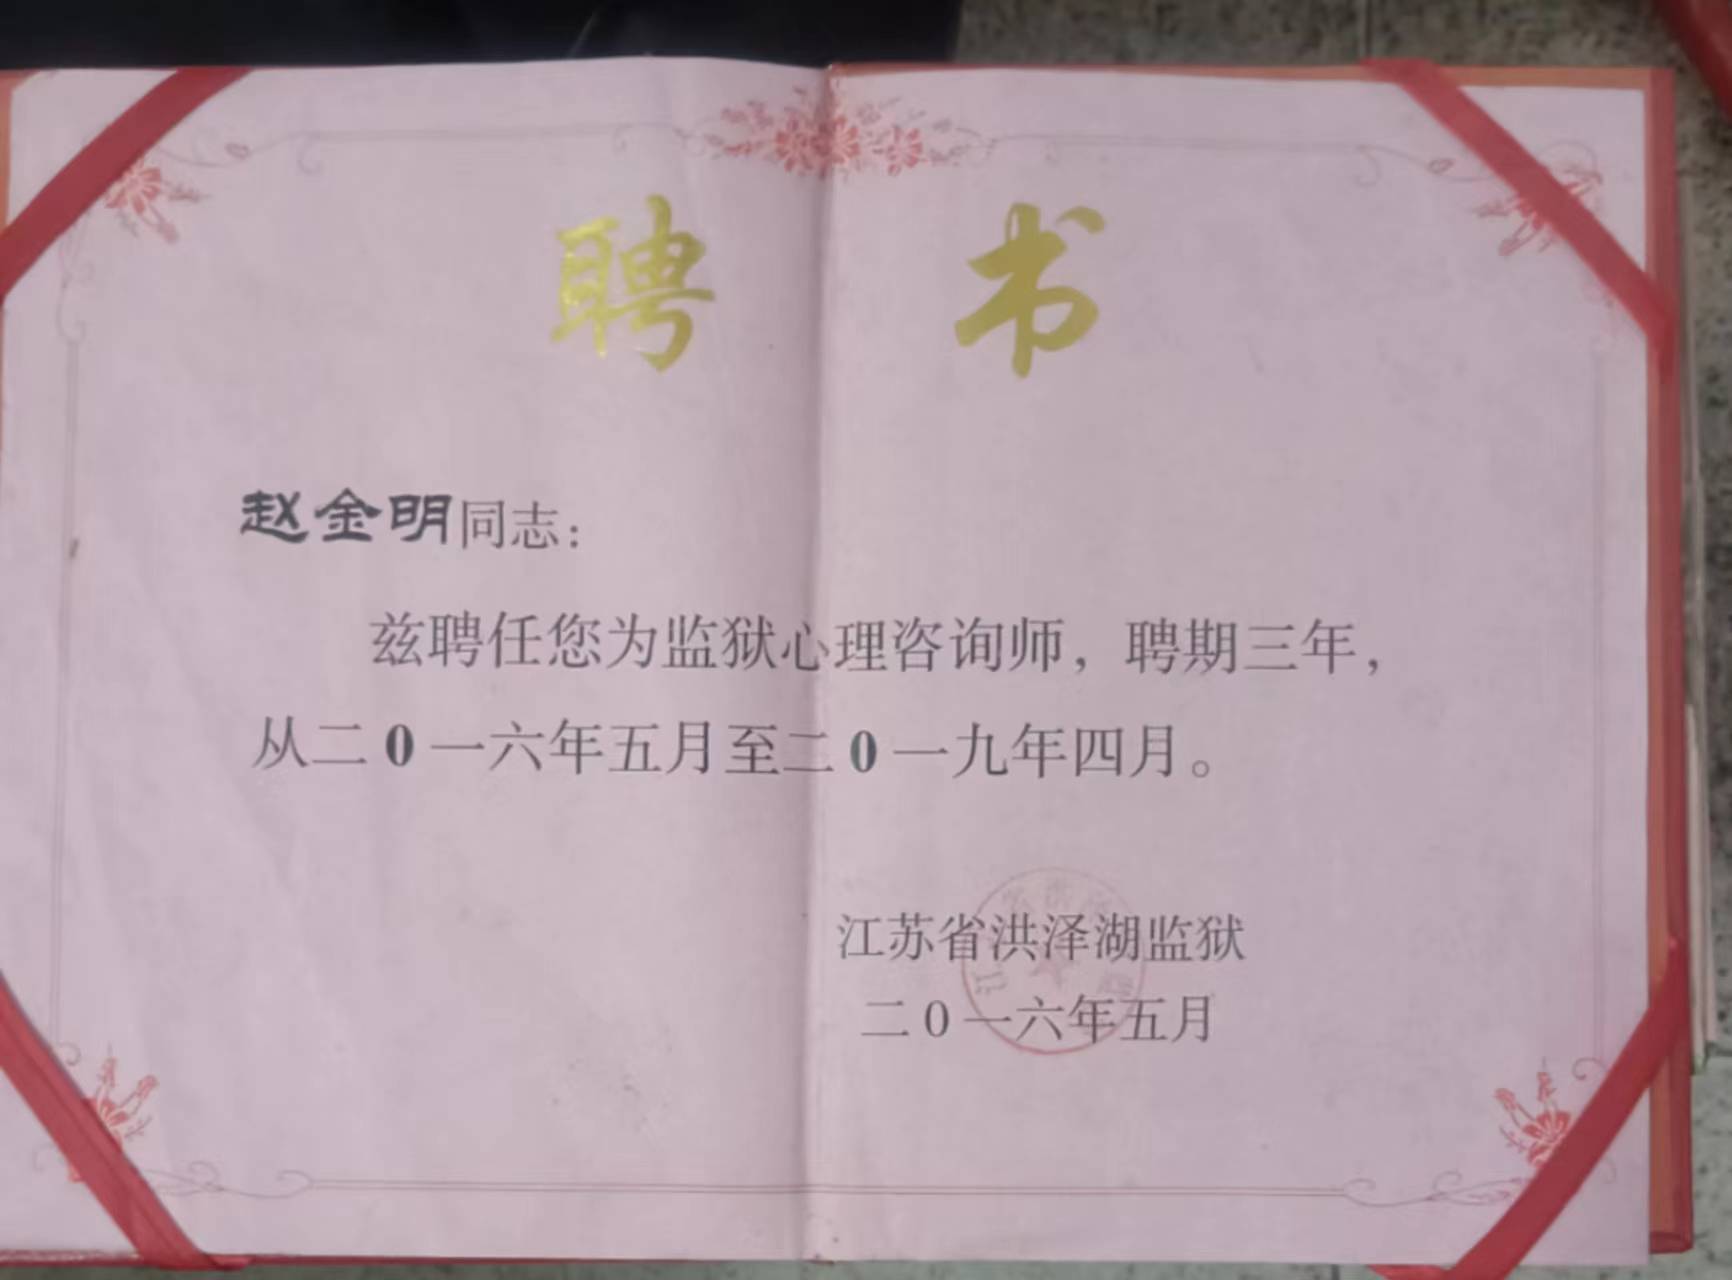 聘 书
赵金明同志：
兹聘任您为监狱心理咨询师，聘期三年，
从二0一六年五月至二0一九年四月。
江苏省洪泽湖监狱
二0一六年五月